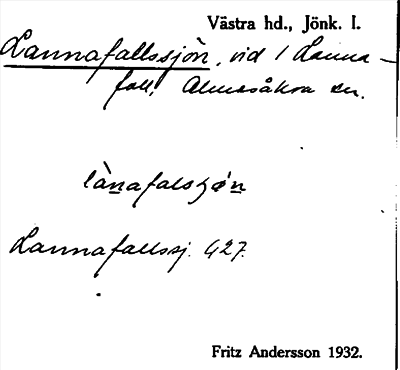 Västra hd., Jönk. l.
Lannafallssjön, vid 1 Lanna-
fall, Almesåkra sn.
lànafalsʃøn
Lannafallssj. G27.
Fritz Andersson 1932.